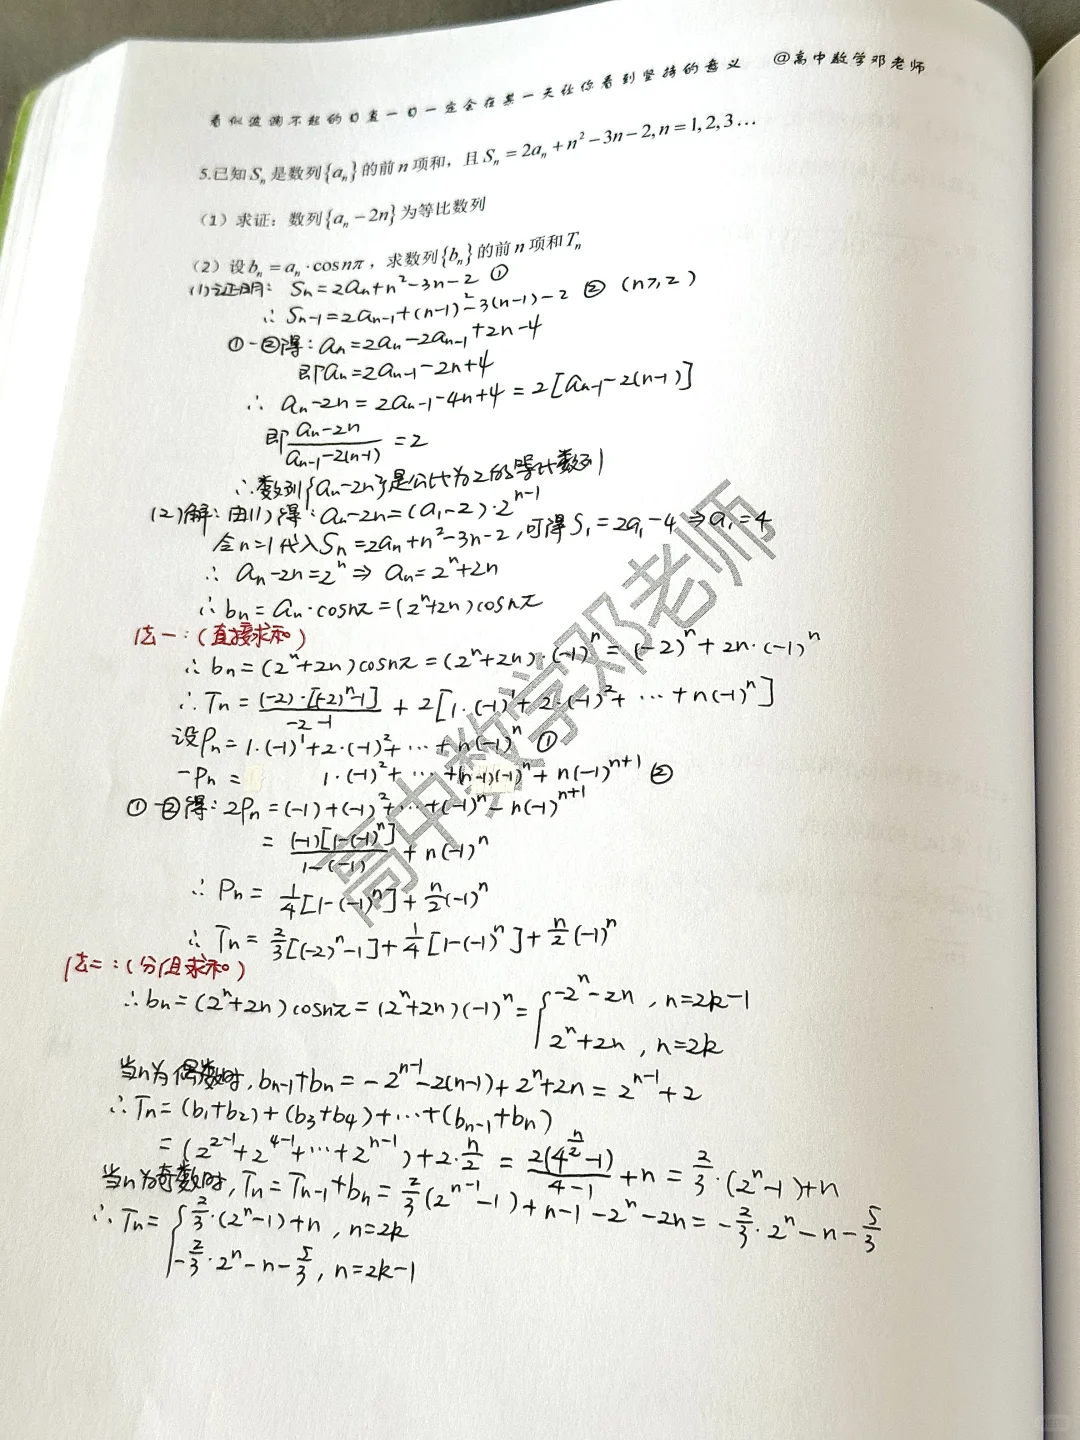 看似波澜不起的日复一日一定会在某一天让你看到坚持的意义 @高中数学邓老师
5.已知Sₙ是数列{aₙ}的前n项和，且Sₙ=2aₙ+n²−3n−2,n=1,2,3…
（1）求证：数列{aₙ−2n}为等比数列
（2）设bₙ=aₙ·cosnπ，求数列{bₙ}的前n项和Tₙ
(1)证明： Sₙ=2aₙ+n²−3n−2 ①
∴ Sₙ₋₁=2aₙ₋₁+(n−1)²−3(n−1)−2 ② (n≥2)
①−②得：aₙ=2aₙ−2aₙ₋₁+2n−4
即aₙ=2aₙ₋₁−2n+4
∴ aₙ−2n=2aₙ₋₁−4n+4=2[aₙ₋₁−2(n−1)]
即(aₙ−2n)/(aₙ₋₁−2(n−1))=2
∴数列{aₙ−2n}是公比为2的等比数列
(2)解：由(1)得：aₙ−2n=(a₁−2)·2ⁿ⁻¹
令n=1代入Sₙ=2aₙ+n²−3n−2,可得S₁=2a₁−4⇒a₁=4
∴ aₙ−2n=2ⁿ⇒aₙ=2ⁿ+2n
∴bₙ=aₙ·cosnπ=(2ⁿ+2n)cosnπ
法一：(直接求和)
∴bₙ=(2ⁿ+2n)cosnπ=(2ⁿ+2n)·(−1)ⁿ=(−2)ⁿ+2n·(−1)ⁿ
∴Tₙ=(−2)·[(−2)ⁿ−1]/(−2−1)+2[1·(−1)¹+2·(−1)²+…+n(−1)ⁿ]
设Pₙ=1·(−1)¹+2·(−1)²+…+n(−1)ⁿ ①
−Pₙ= 1·(−1)²+…+(n−1)(−1)ⁿ+n(−1)ⁿ⁺¹ ②
①−②得：2Pₙ=(−1)+(−1)²+…+(−1)ⁿ−n(−1)ⁿ⁺¹
=(−1)[1−(−1)ⁿ]/(1−(−1))+n(−1)ⁿ
∴ Pₙ=1/4[1−(−1)ⁿ]+n/2(−1)ⁿ
∴ Tₙ=2/3[(−2)ⁿ−1]+1/4[1−(−1)ⁿ]+n/2(−1)ⁿ
法二：(分组求和)
∴bₙ=(2ⁿ+2n)cosnπ=(2ⁿ+2n)(−1)ⁿ={−2ⁿ−2n, n=2k−1
2ⁿ+2n, n=2k
当n为偶数时,bₙ₋₁+bₙ=−2ⁿ⁻¹−2(n−1)+2ⁿ+2n=2ⁿ⁻¹+2
∴Tₙ=(b₁+b₂)+(b₃+b₄)+…+(bₙ₋₁+bₙ)
=(2²⁻¹+2⁴⁻¹+…+2ⁿ⁻¹)+2·n/2=2(4^(n/2)−1)/(4−1)+n=2/3·(2ⁿ−1)+n
当n为奇数时,Tₙ=Tₙ₋₁+bₙ=2/3(2ⁿ⁻¹−1)+n−1−2ⁿ−2n=−2/3·2ⁿ−n−5/3
∴Tₙ={2/3·(2ⁿ−1)+n, n=2k
−2/3·2ⁿ−n−5/3, n=2k−1
高中数学邓老师